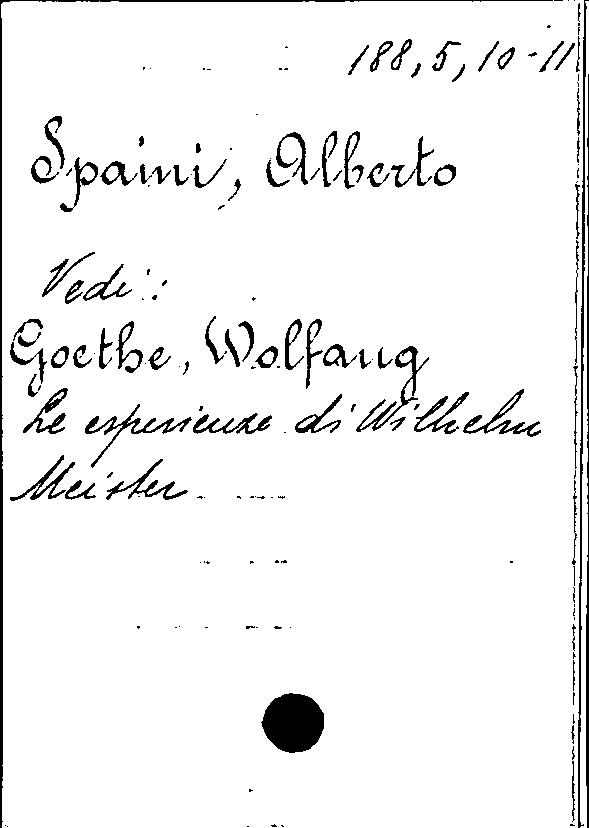 188, 5, 10-11
Spaini, Alberto
Vedi:
Goethe, Wolfang
Le esperienze di Wilhelm
Meister